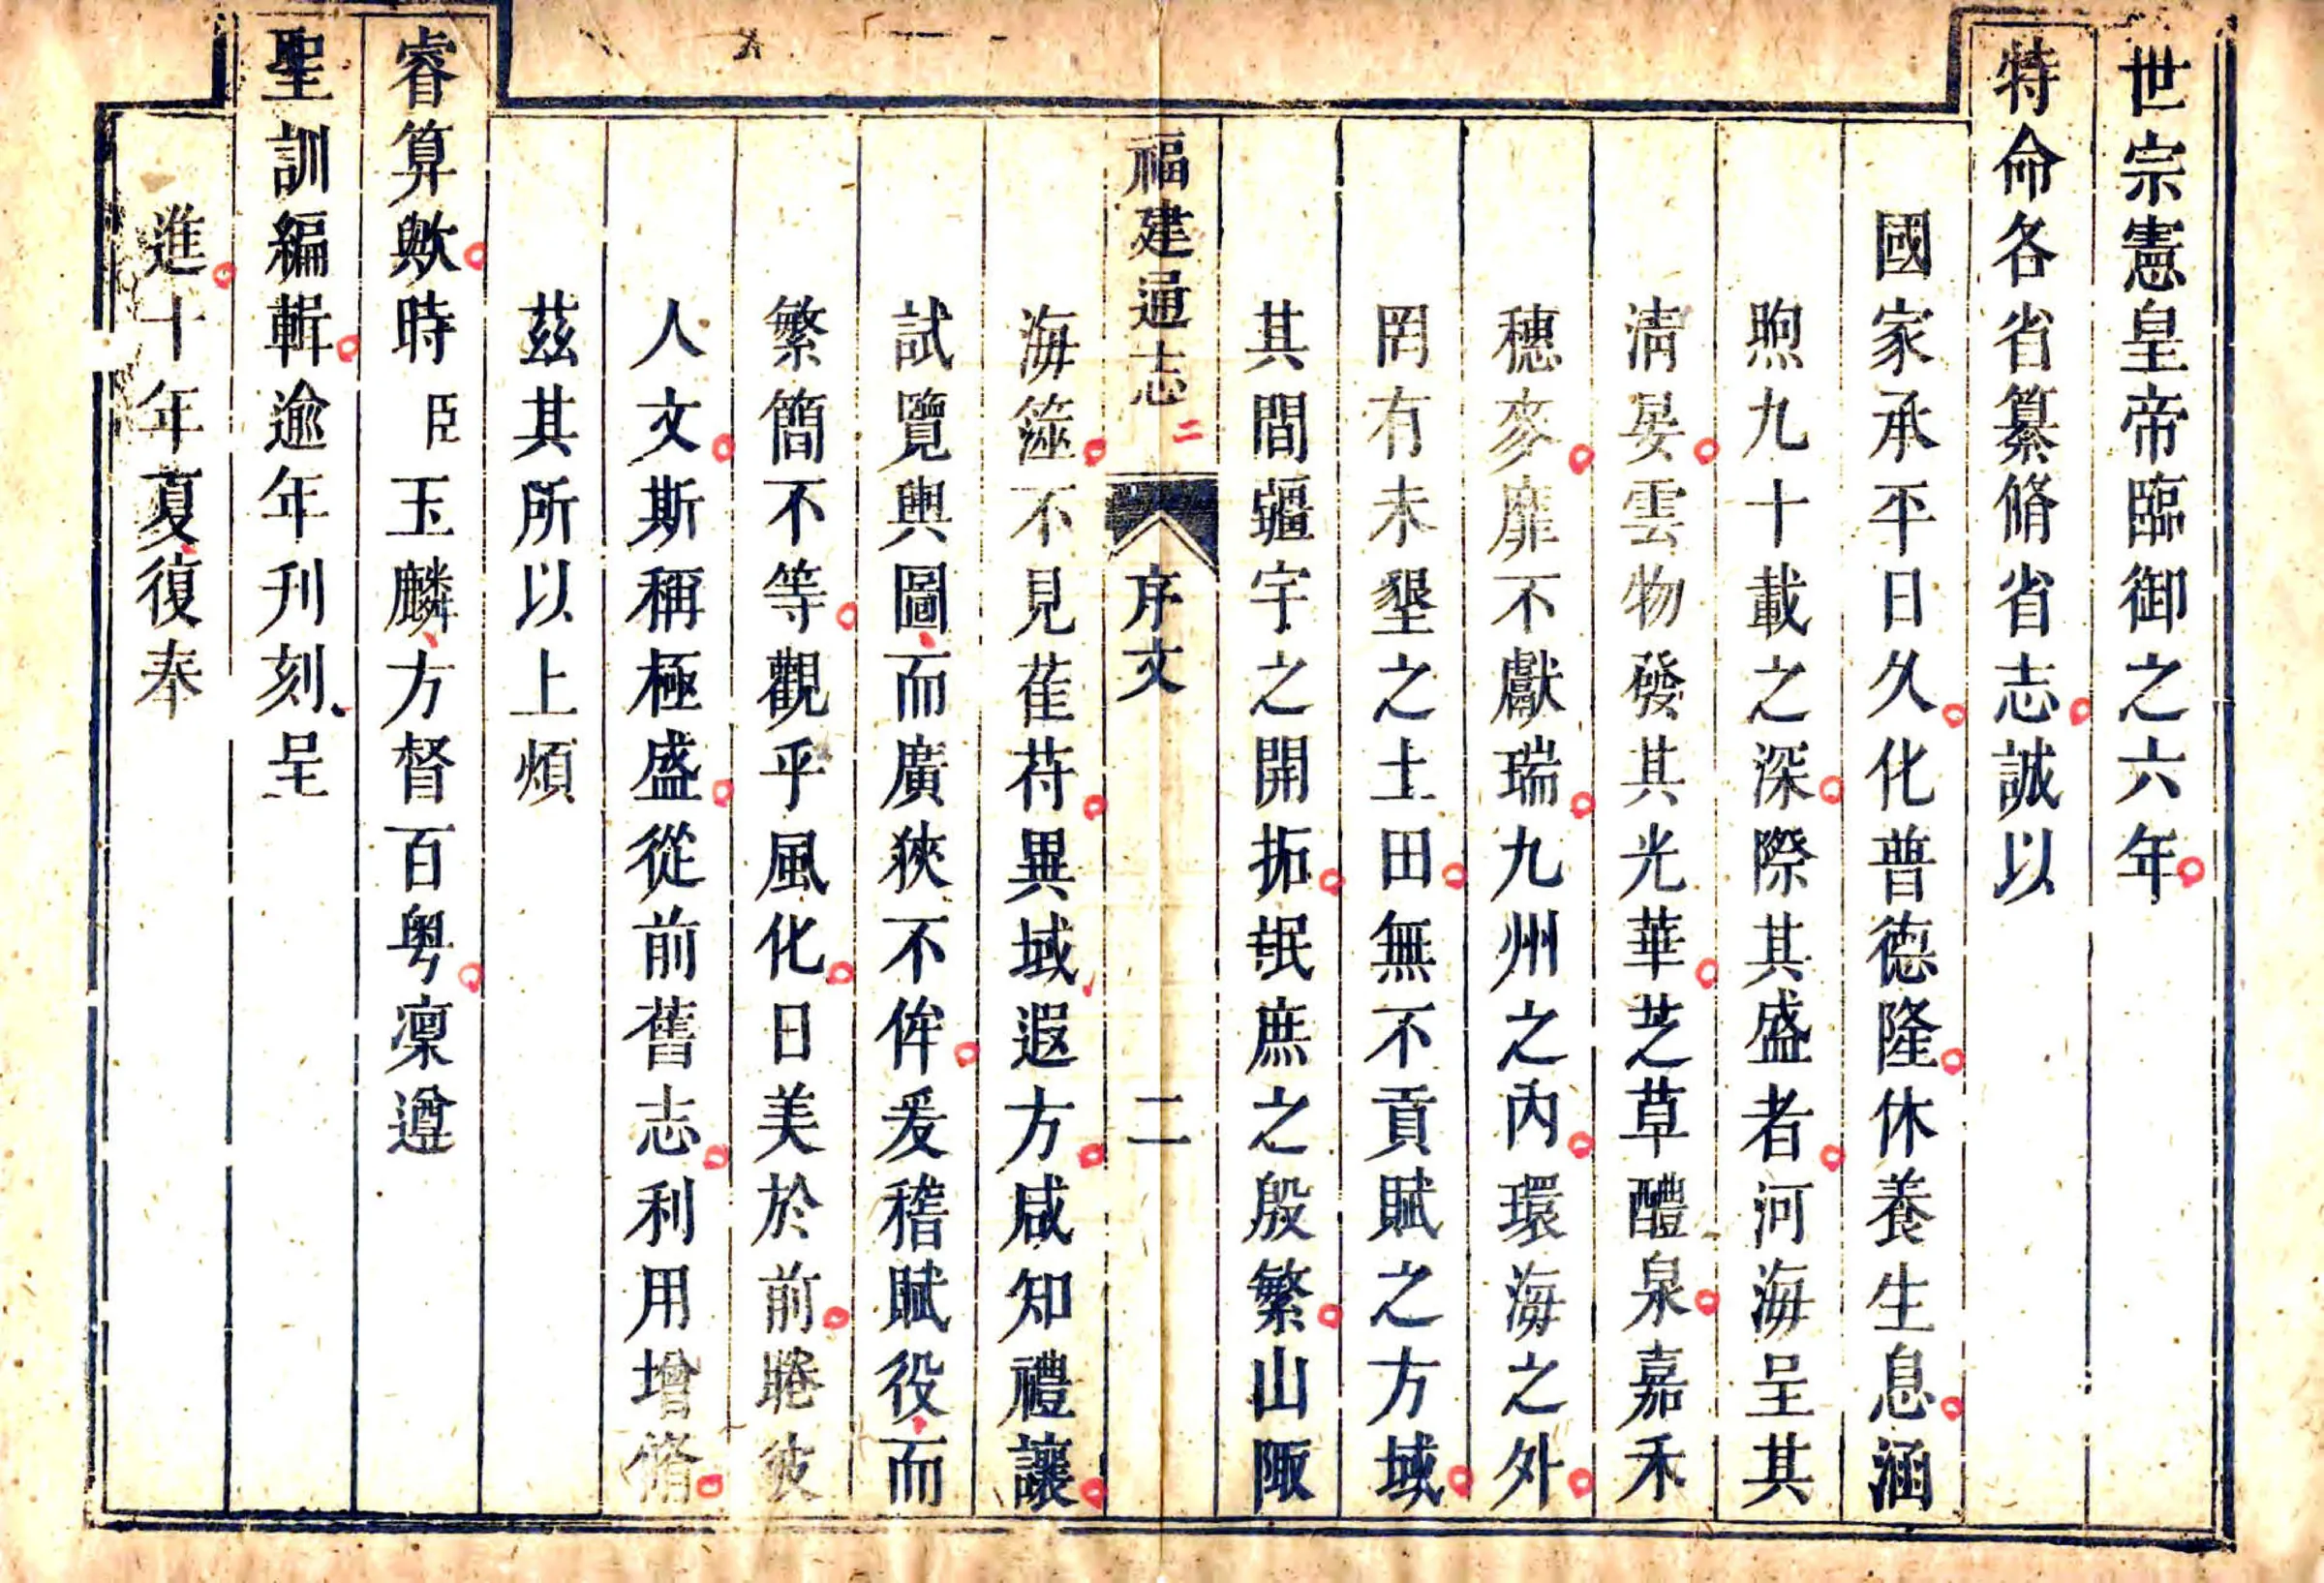 世宗憲皇帝臨御之六年
特命各省纂脩省志誠以
國家承平日久化普德隆休養生息涵
煦九十載之深際其盛者河海呈其
淸晏雲物發其光華芝草醴泉嘉禾
穗麥靡不獻瑞九州之內環海之外
罔有未墾之土田無不貢賦之方域
其間疆宇之開拓氓庶之殷繁山陬
福建通志 二
序文 二
海澨不見萑苻異域遐方咸知禮讓
試覽輿圖而廣狹不侔爰稽賦役而
繁簡不等觀乎風化日美於前睠彼
人文斯稱極盛從前舊志利用增脩
茲其所以上煩
睿算歟時臣玉麟方督百粤凜遵
聖訓編輯逾年刋刻呈
進十年夏復奉